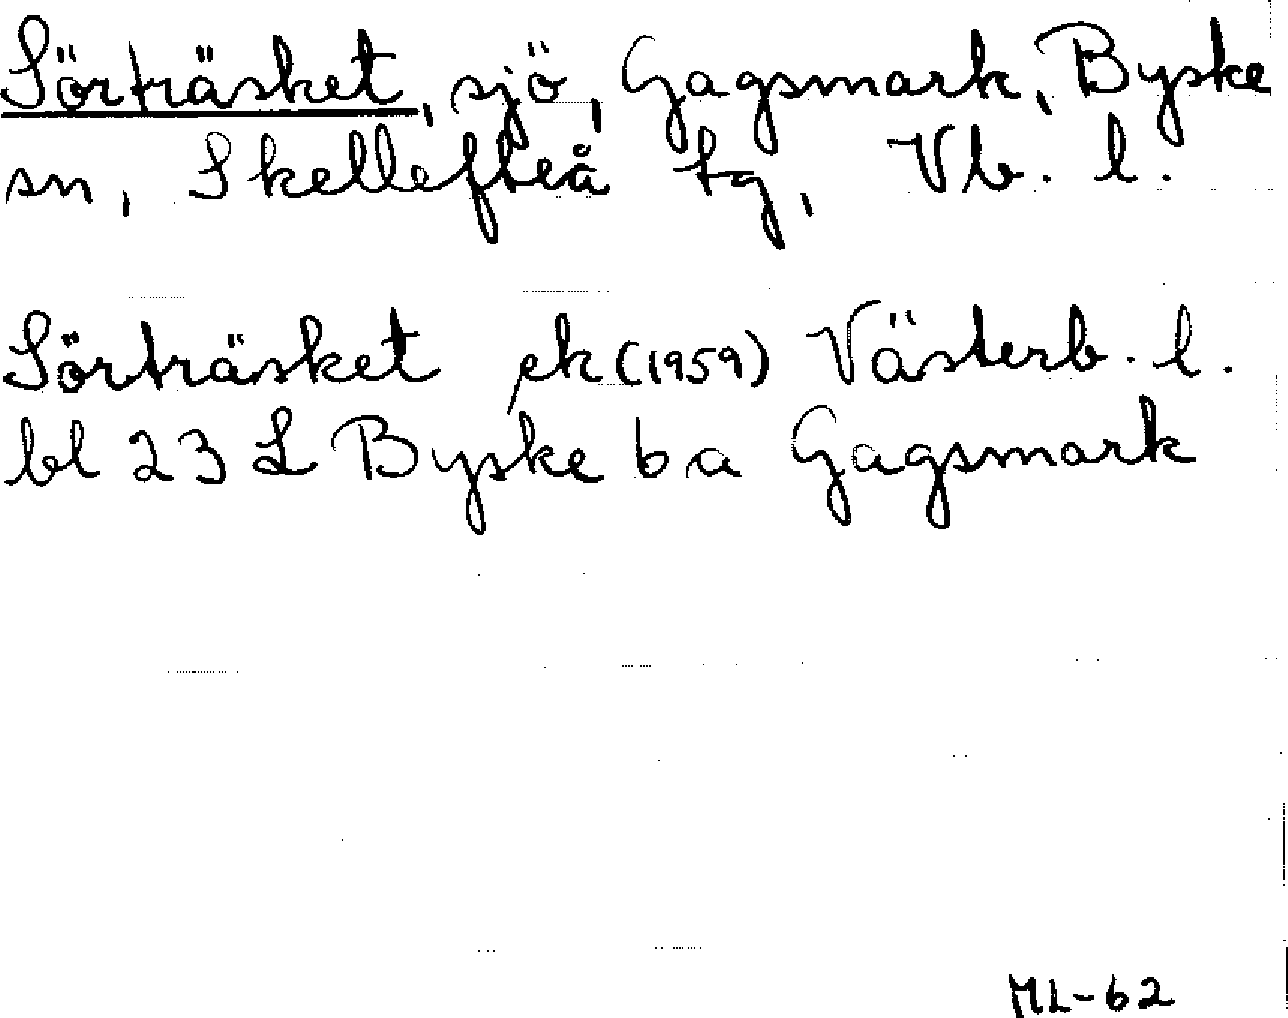 Sörträsket, sjö, Gagsmark, Byske
sn, Skellefteå tg, Vb. l.
Sörträsket ek (1959) Västerb. l.
bl 23 L Byske b a Gagsmark
ML-62